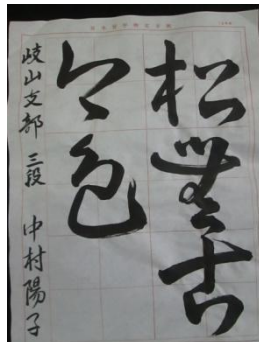 松無古
今色
岐山支部 三段 中村陽子